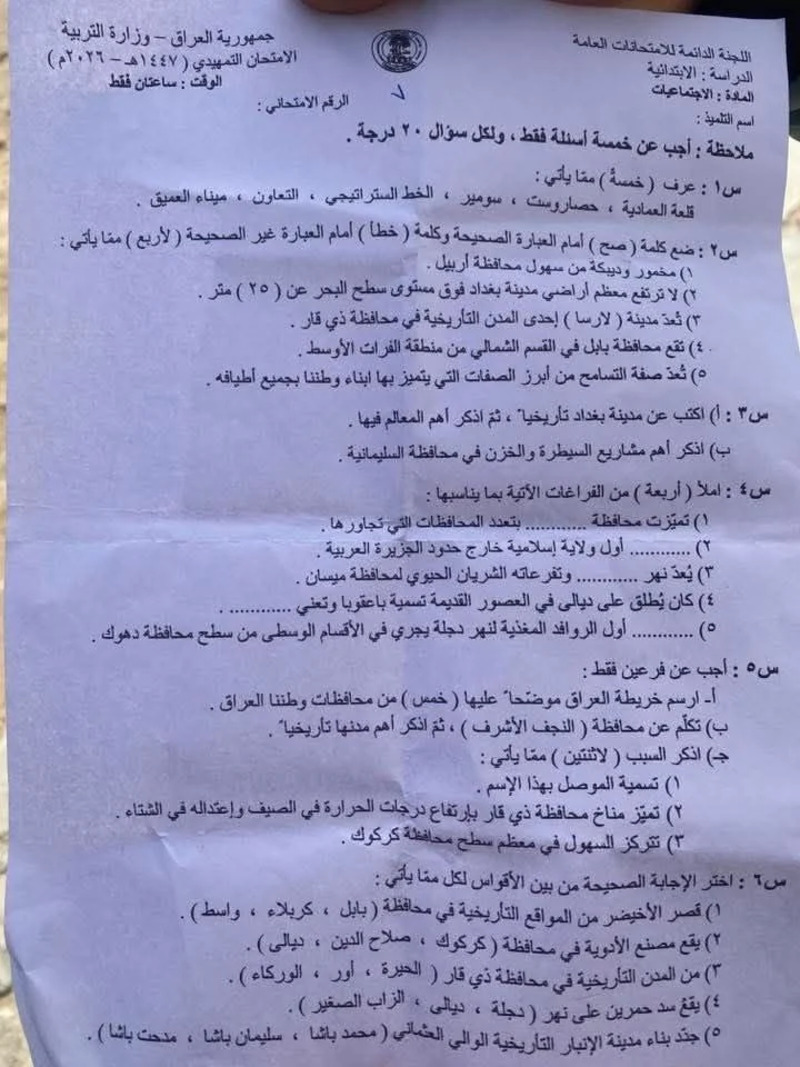 اللجنة الدائمة للامتحانات العامة
الدراسة : الابتدائية
المادة : الاجتماعيات
اسم التلميذ :
جمهورية العراق – وزارة التربية
الامتحان التمهيدي ( ١٤٤٧هـ – ٢٠٢٦م )
الوقت : ساعتان فقط
الرقم الامتحاني :
ملاحظة : أجب عن خمسة أسئلة فقط ، ولكل سؤال ٢٠ درجة .
س١ : عرف ( خمسةً ) ممّا يأتي :
قلعة العمادية ، حصاروست ، سومير ، الخط الستراتيجي ، التعاون ، ميناء العميق .
س٢ : ضع كلمة ( صح ) أمام العبارة الصحيحة وكلمة ( خطأ ) أمام العبارة غير الصحيحة ( لأربع ) ممّا يأتي :
١) مخمور وديبكة من سهول محافظة أربيل .
٢) لا ترتفع معظم أراضي مدينة بغداد فوق مستوى سطح البحر عن ( ٢٥ ) متر .
٣) تُعدّ مدينة ( لارسا ) إحدى المدن التأريخية في محافظة ذي قار .
٤) تقع محافظة بابل في القسم الشمالي من منطقة الفرات الأوسط .
٥) تُعدّ صفة التسامح من أبرز الصفات التي يتميز بها ابناء وطننا بجميع أطيافه .
س٣ : أ) اكتب عن مدينة بغداد تأريخياً ، ثمّ اذكر أهم المعالم فيها .
ب) اذكر أهم مشاريع السيطرة والخزن في محافظة السليمانية .
س٤ : املأ ( أربعة ) من الفراغات الأتية بما يناسبها :
١) تميّزت محافظة ............ بتعدد المحافظات التي تجاورها .
٢) ............ أول ولاية إسلامية خارج حدود الجزيرة العربية .
٣) يُعدّ نهر ............ وتفرعاته الشريان الحيوي لمحافظة ميسان .
٤) كان يُطلق على ديالى في العصور القديمة تسمية باعقوبا وتعني ............ .
٥) ............ أول الروافد المغذية لنهر دجلة يجري في الأقسام الوسطى من سطح محافظة دهوك .
س٥ : أجب عن فرعين فقط :
أ- ارسم خريطة العراق موضّحاً عليها ( خمس ) من محافظات وطننا العراق .
ب) تكلّم عن محافظة ( النجف الأشرف ) ، ثمّ اذكر أهم مدنها تأريخياً .
جـ) اذكر السبب ( لاثنتين ) ممّا يأتي :
١) تسمية الموصل بهذا الإسم .
٢) تميّز مناخ محافظة ذي قار بإرتفاع درجات الحرارة في الصيف وإعتداله في الشتاء .
٣) تتركز السهول في معظم سطح محافظة كركوك .
س٦ : اختر الإجابة الصحيحة من بين الأقواس لكل ممّا يأتي :
١) قصر الأخيضر من المواقع التأريخية في محافظة ( بابل ، كربلاء ، واسط ) .
٢) يقع مصنع الأدوية في محافظة ( كركوك ، صلاح الدين ، ديالى ) .
٣) من المدن التأريخية في محافظة ذي قار ( الحيرة ، أور ، الوركاء ) .
٤) يقع سد حمرين على نهر ( دجلة ، ديالى ، الزاب الصغير ) .
٥) جدّد بناء مدينة الإنبار التأريخية الوالي العثماني ( محمد باشا ، سليمان باشا ، مدحت باشا ) .